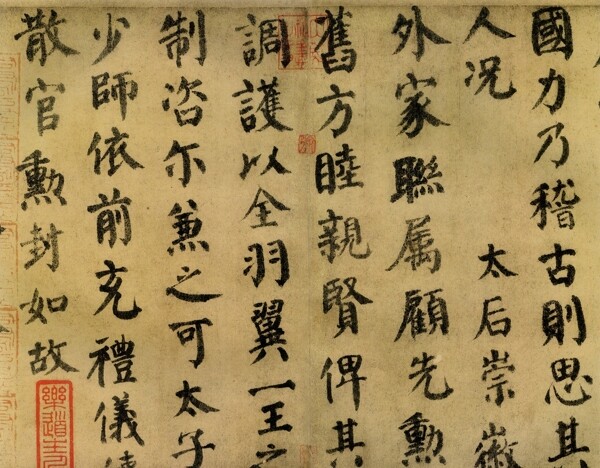 國力乃稽古則思其
人况 太后崇徽
外家聯属顧先勲
舊方睦親賢俾其
調護以全羽翼一王之
制咨尔兼之可太子
少師依前充禮儀使
散官勳封如故